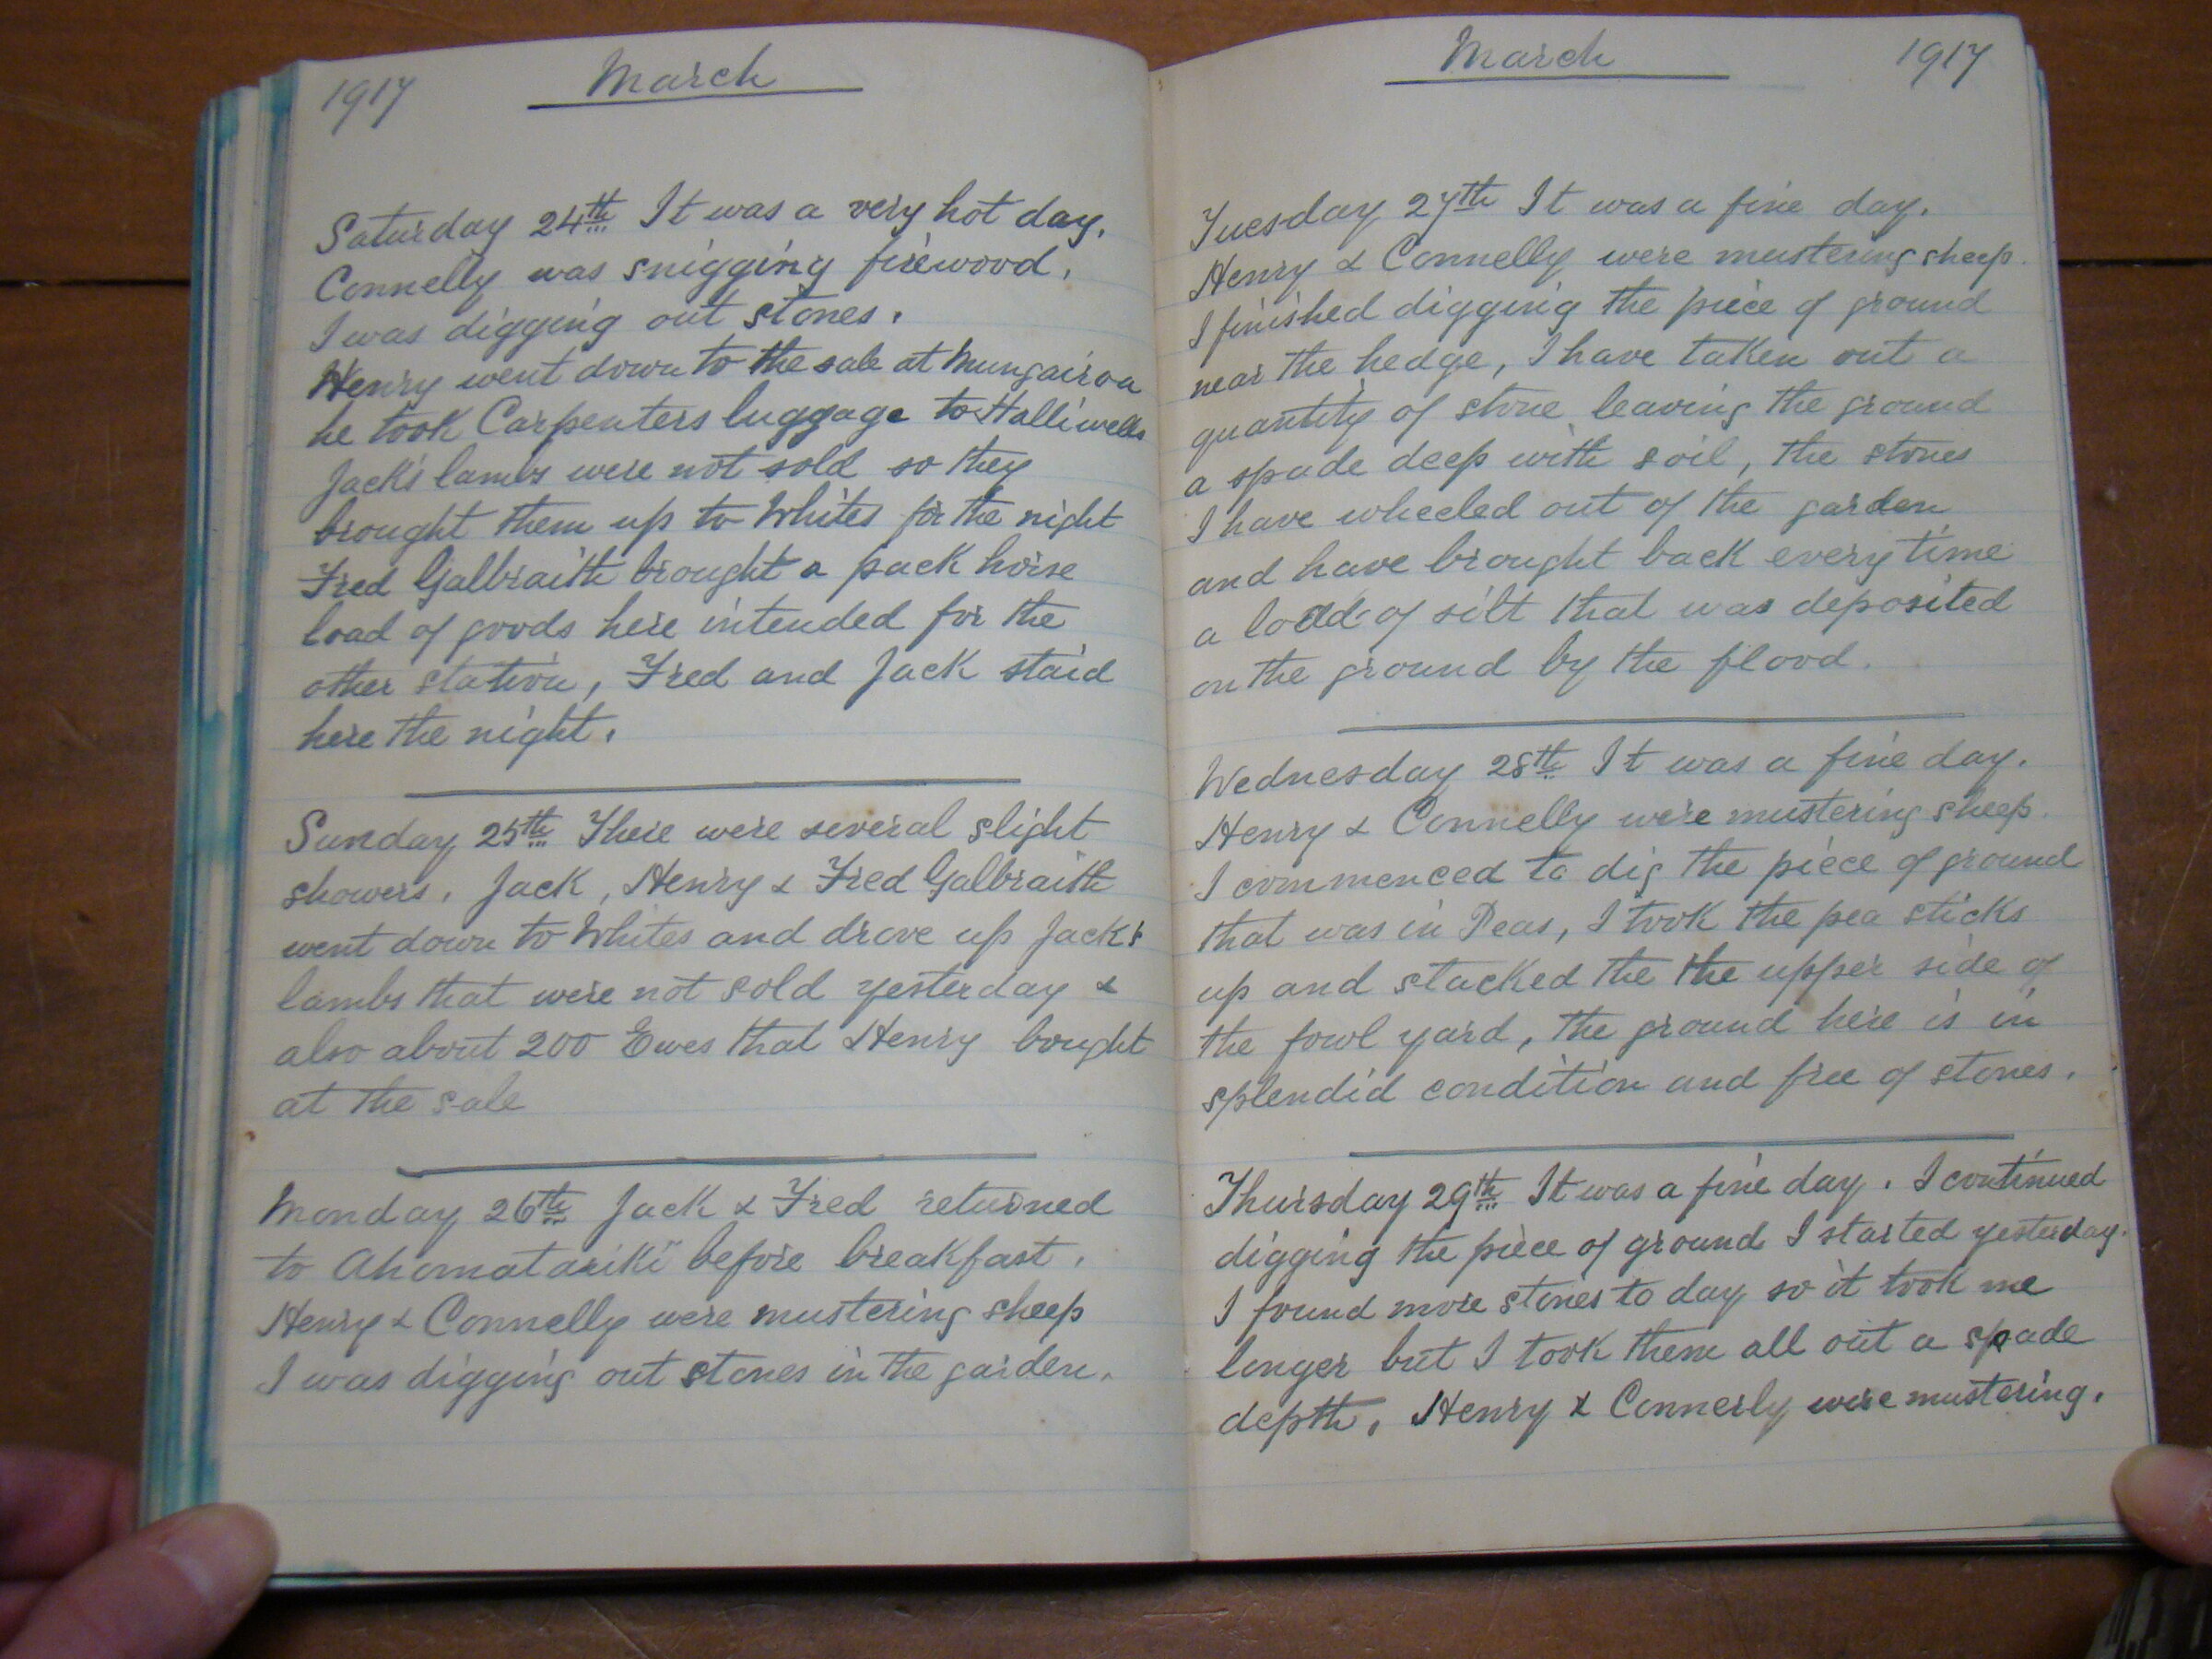 1917 March
Saturday 24th It was a very hot day.
Connelly was snigging firewood.
I was digging out stones.
Henry went down to the sale at Mungairoa
he took Carpenters luggage to Halliwells
Jack's lambs were not sold so they
brought them up to Whites for the night
Fred Galbraith brought a pack horse
load of goods here intended for the
other station, Fred and Jack staid
here the night.
Sunday 25th There were several slight
showers. Jack, Henry & Fred Galbraith
went down to Whites and drove up Jack's
lambs that were not sold yesterday &
also about 200 Ewes that Henry bought
at the sale
Monday 26th Jack & Fred returned
to Ahomatariki before breakfast.
Henry & Connelly were mustering sheep
I was digging out stones in the garden.
March 1917
Tuesday 27th It was a fine day.
Henry & Connelly were mustering sheep.
I finished digging the piece of ground
near the hedge, I have taken out a
quantity of stone leaving the ground
a spade deep with soil, the stones
I have wheeled out of the garden
and have brought back every time
a load of silt that was deposited
on the ground by the flood.
Wednesday 28th It was a fine day.
Henry & Connelly were mustering sheep.
I commenced to dig the piece of ground
that was in Peas, I took the pea sticks
up and stacked the the upper side of
the fowl yard, the ground here is in
splendid condition and free of stones.
Thursday 29th It was a fine day. I continued
digging the piece of ground I started yesterday.
I found more stones to day so it took me
longer but I took them all out a spade
depth. Henry & Connerly were mustering.